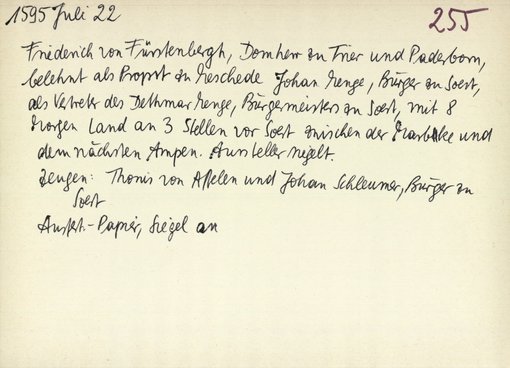 1595 Juli 22
255
Friederich von Fürstenbergh, Domherr zu Trier und Paderborn,
belehnt als Propst zu Meschede Johan Menge, Bürger zu Soest,
als Vertreter des Dethmar Menge, Bürgermeisters zu Soest, mit 8
Morgen Land an 3 Stellen vor Soest zwischen der Marbke und
dem nächsten Ampen. Aussteller siegelt.
Zeugen: Thonis von Affelen und Johan Schleumer, Bürger zu
Soest
Ausfert.-Papier, Siegel an